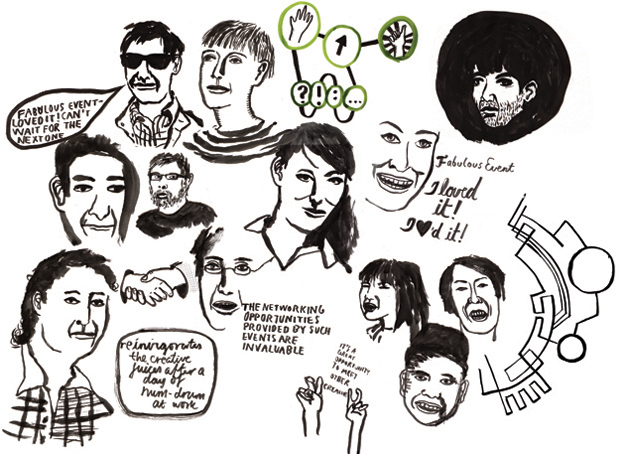 FABULOUS EVENT-
LOVED IT I CAN'T
WAIT FOR THE
NEXT ONE
? ! : ...
Fabulous Event
I loved
it!
I ♥'d it!
THE NETWORKING
OPPORTUNITIES
PROVIDED BY SUCH
EVENTS ARE
INVALUABLE
reinvigorates
the creative
juices after a
day of
hum-drum
at work
IT'S A
GREAT
OPPORTUNITY
TO MEET
OTHER